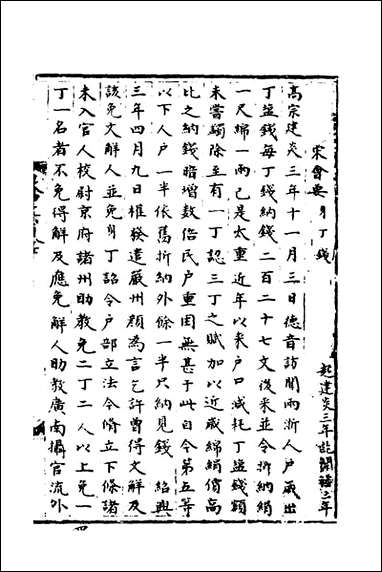 宋會要 身丁錢
起建炎三年訖開禧三年
高宗建炎三年十一月三日德音訪聞兩浙人户嵗出
丁鹽錢每丁錢納錢二百二十七文後來並令折納絹
一尺綿一兩已是太重近年以來户口减耗丁鹽錢額
未嘗蠲除至有一丁認三丁之賦加以近嵗綿絹價高
比之納錢暗增數倍民户重困無甚于此自今第五等
以下人户一半依舊折納外餘一半只納見錢 紹興
三年四月九日權發遣嚴州顔為言乞許曽得文解及
該免文解人並免身丁詔令户部立法今脩立下條諸
未入官人校尉京府諸州助教免二丁二人以上免一
丁一名者不免得解及應免解人助教廣南攝官流外